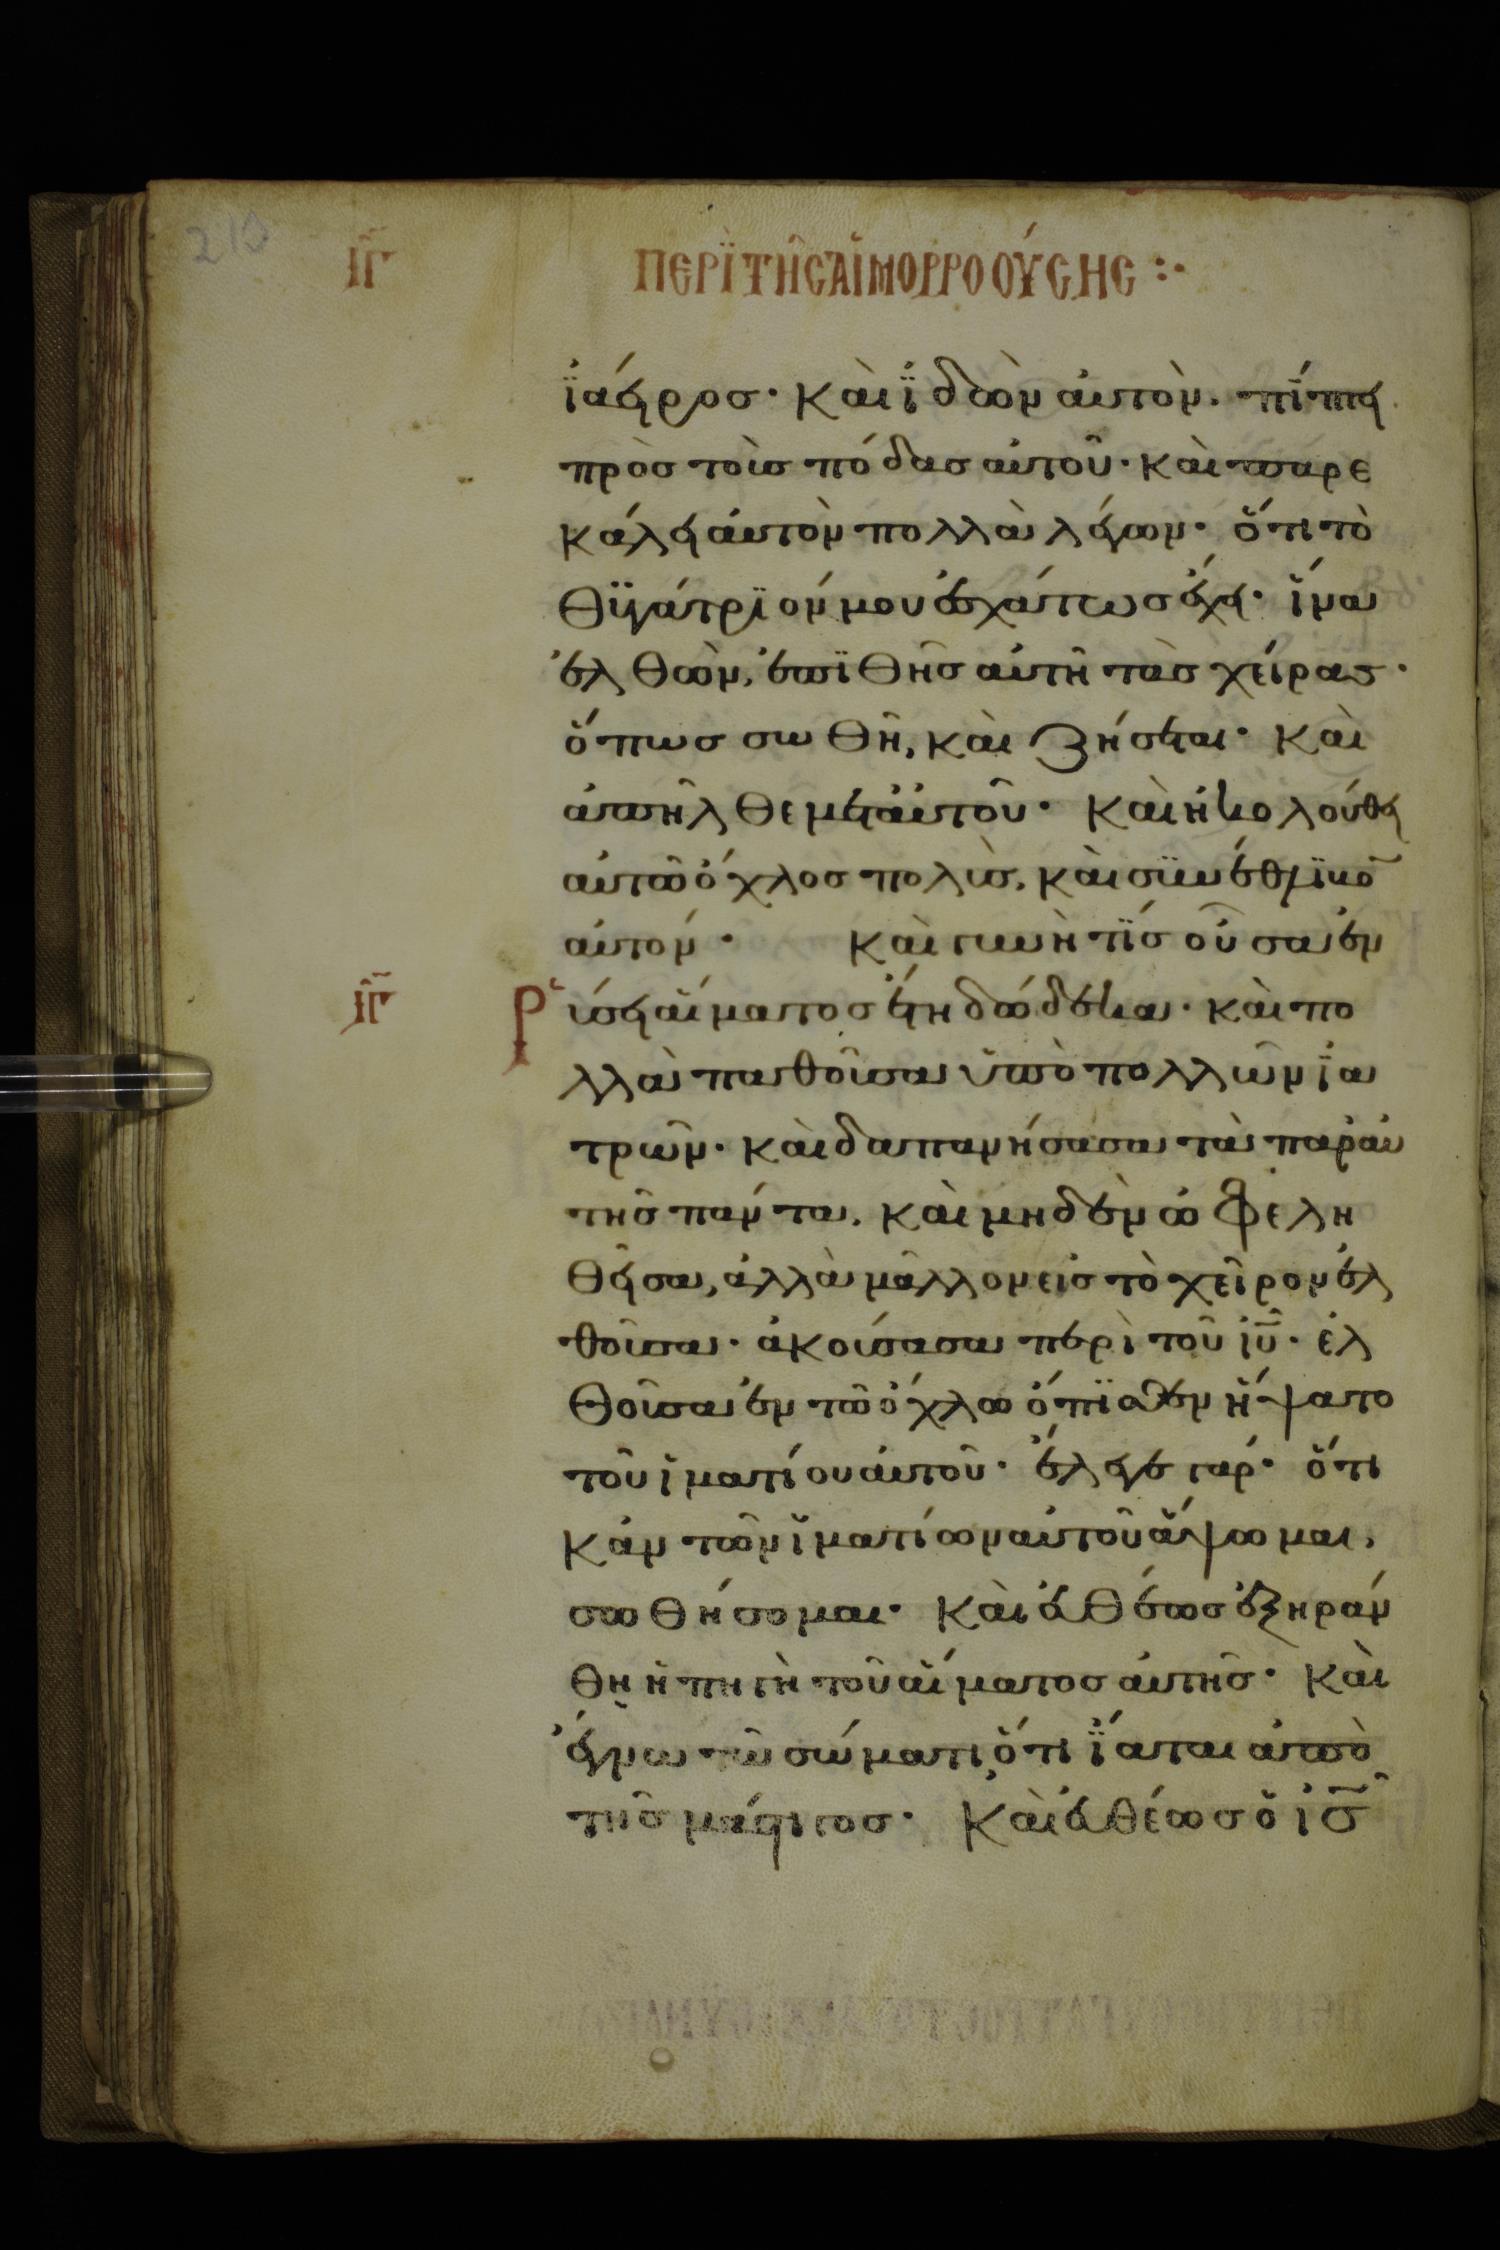 210
ΙΓ ΠΕΡῒ ΤΗ͂Σ ΑἹΜΟΡΡΟΟΎΣΗΣ :·
ϊάειρος· καὶ ϊ̓δὼν αὐτὸν. πίπτει
πρὸς τοὺς πόδας αὐτοῦ· καὶ παρε
κάλει αὐτὸν πολλὰ λέγων· ὅτι τὸ
θϋγάτρϊόν μου ἐσχάτως ἔχει· ἵνα
ἐλθὼν, ἐπϊθῆς αὐτῆ τὰς χείρας·
ὅπως σωθῆ, καὶ ζήσεται· Καὶ
ἀπῆλθε μετ' αὐτοῦ· Καὶ ἠκολούθει
αὐτῶ ὄχλος πολὺς, καὶ σϋνέθλϊβο̄
αὐτόν· Καὶ γυνὴ τϊς οὖσα ἐν
ΙΓ ῥύσει αἵματος ἔτη δώδεκα· καὶ πο
λλὰ παθοῦσα ὑπὸ πολλῶν ϊα
τρῶν· καὶ δαπανήσασα τὰ παρ' αυ
τῆς πάντα, καὶ μηδὲν ὠφελη
θεῖσα, ἀλλὰ μᾶλλον εἰς τὸ χεῖρον ἐλ
θοῦσα· ἀκούσασα περὶ τοῦ ἰῡ· ἐλ
θοῦσα ἐν τῶ ὄχλω ὄπϊσθεν ἥψατο
τοῦ ἱματίου αὐτοῦ· ἔλεγε γάρ· ὅτι
κἀν τῶν ἱματίων αὐτοῦ ἅψωμαι,
σωθήσομαι· Καὶ εὐθέως ἐξηράν
θη ἡ πηγὴ τοῦ αἵματος αὐτῆς· Καὶ
ἔγνω τῶ σώματι, ὅτι ΐαται ἀπὸ
τῆς μάστιγος· Καὶ εὐθέως ὁ ἰς̄